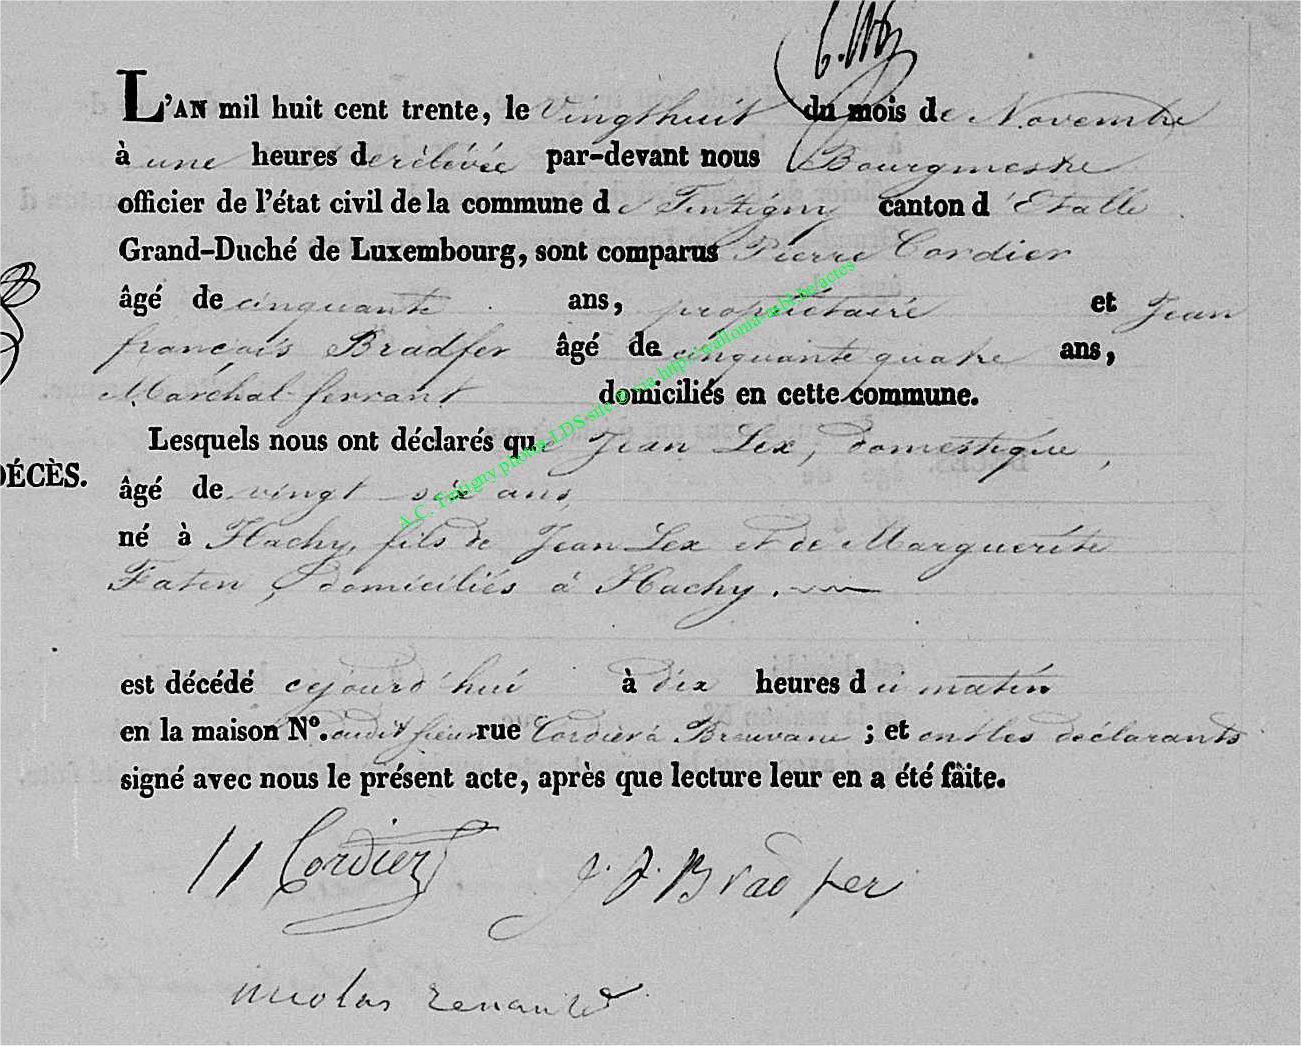 L'AN mil huit cent trente, le Vingthuit du mois de Novembre
à une heures derélévée par-devant nous Bourgmestre
officier de l'état civil de la commune de Tintigny canton d'Etalle
Grand-Duché de Luxembourg, sont comparus Pierre Cordier
âgé de cinquante ans, propriétaire et Jean
françois Bradfer âgé de cinquante quatre ans,
Maréchal ferrant domiciliés en cette commune.
Lesquels nous ont déclarés que Jean Lex, domestique,
DÉCÈS.
âgé de vingt six ans,
né à Hachy, fils de Jean Lex et de Marguerite
Faten, domiciliés à Hachy.
est décédé cejourd'hui à dix heures du matin
en la maison N°. dudit sieur rue Cordier à ; et ont les déclarants
signé avec nous le présent acte, après que lecture leur en a été faite.
Cordier J. F. Bradfer
nicolas renauld
A.C. Tintigny photos LDS site via http://wallonia-asbl.be/actes